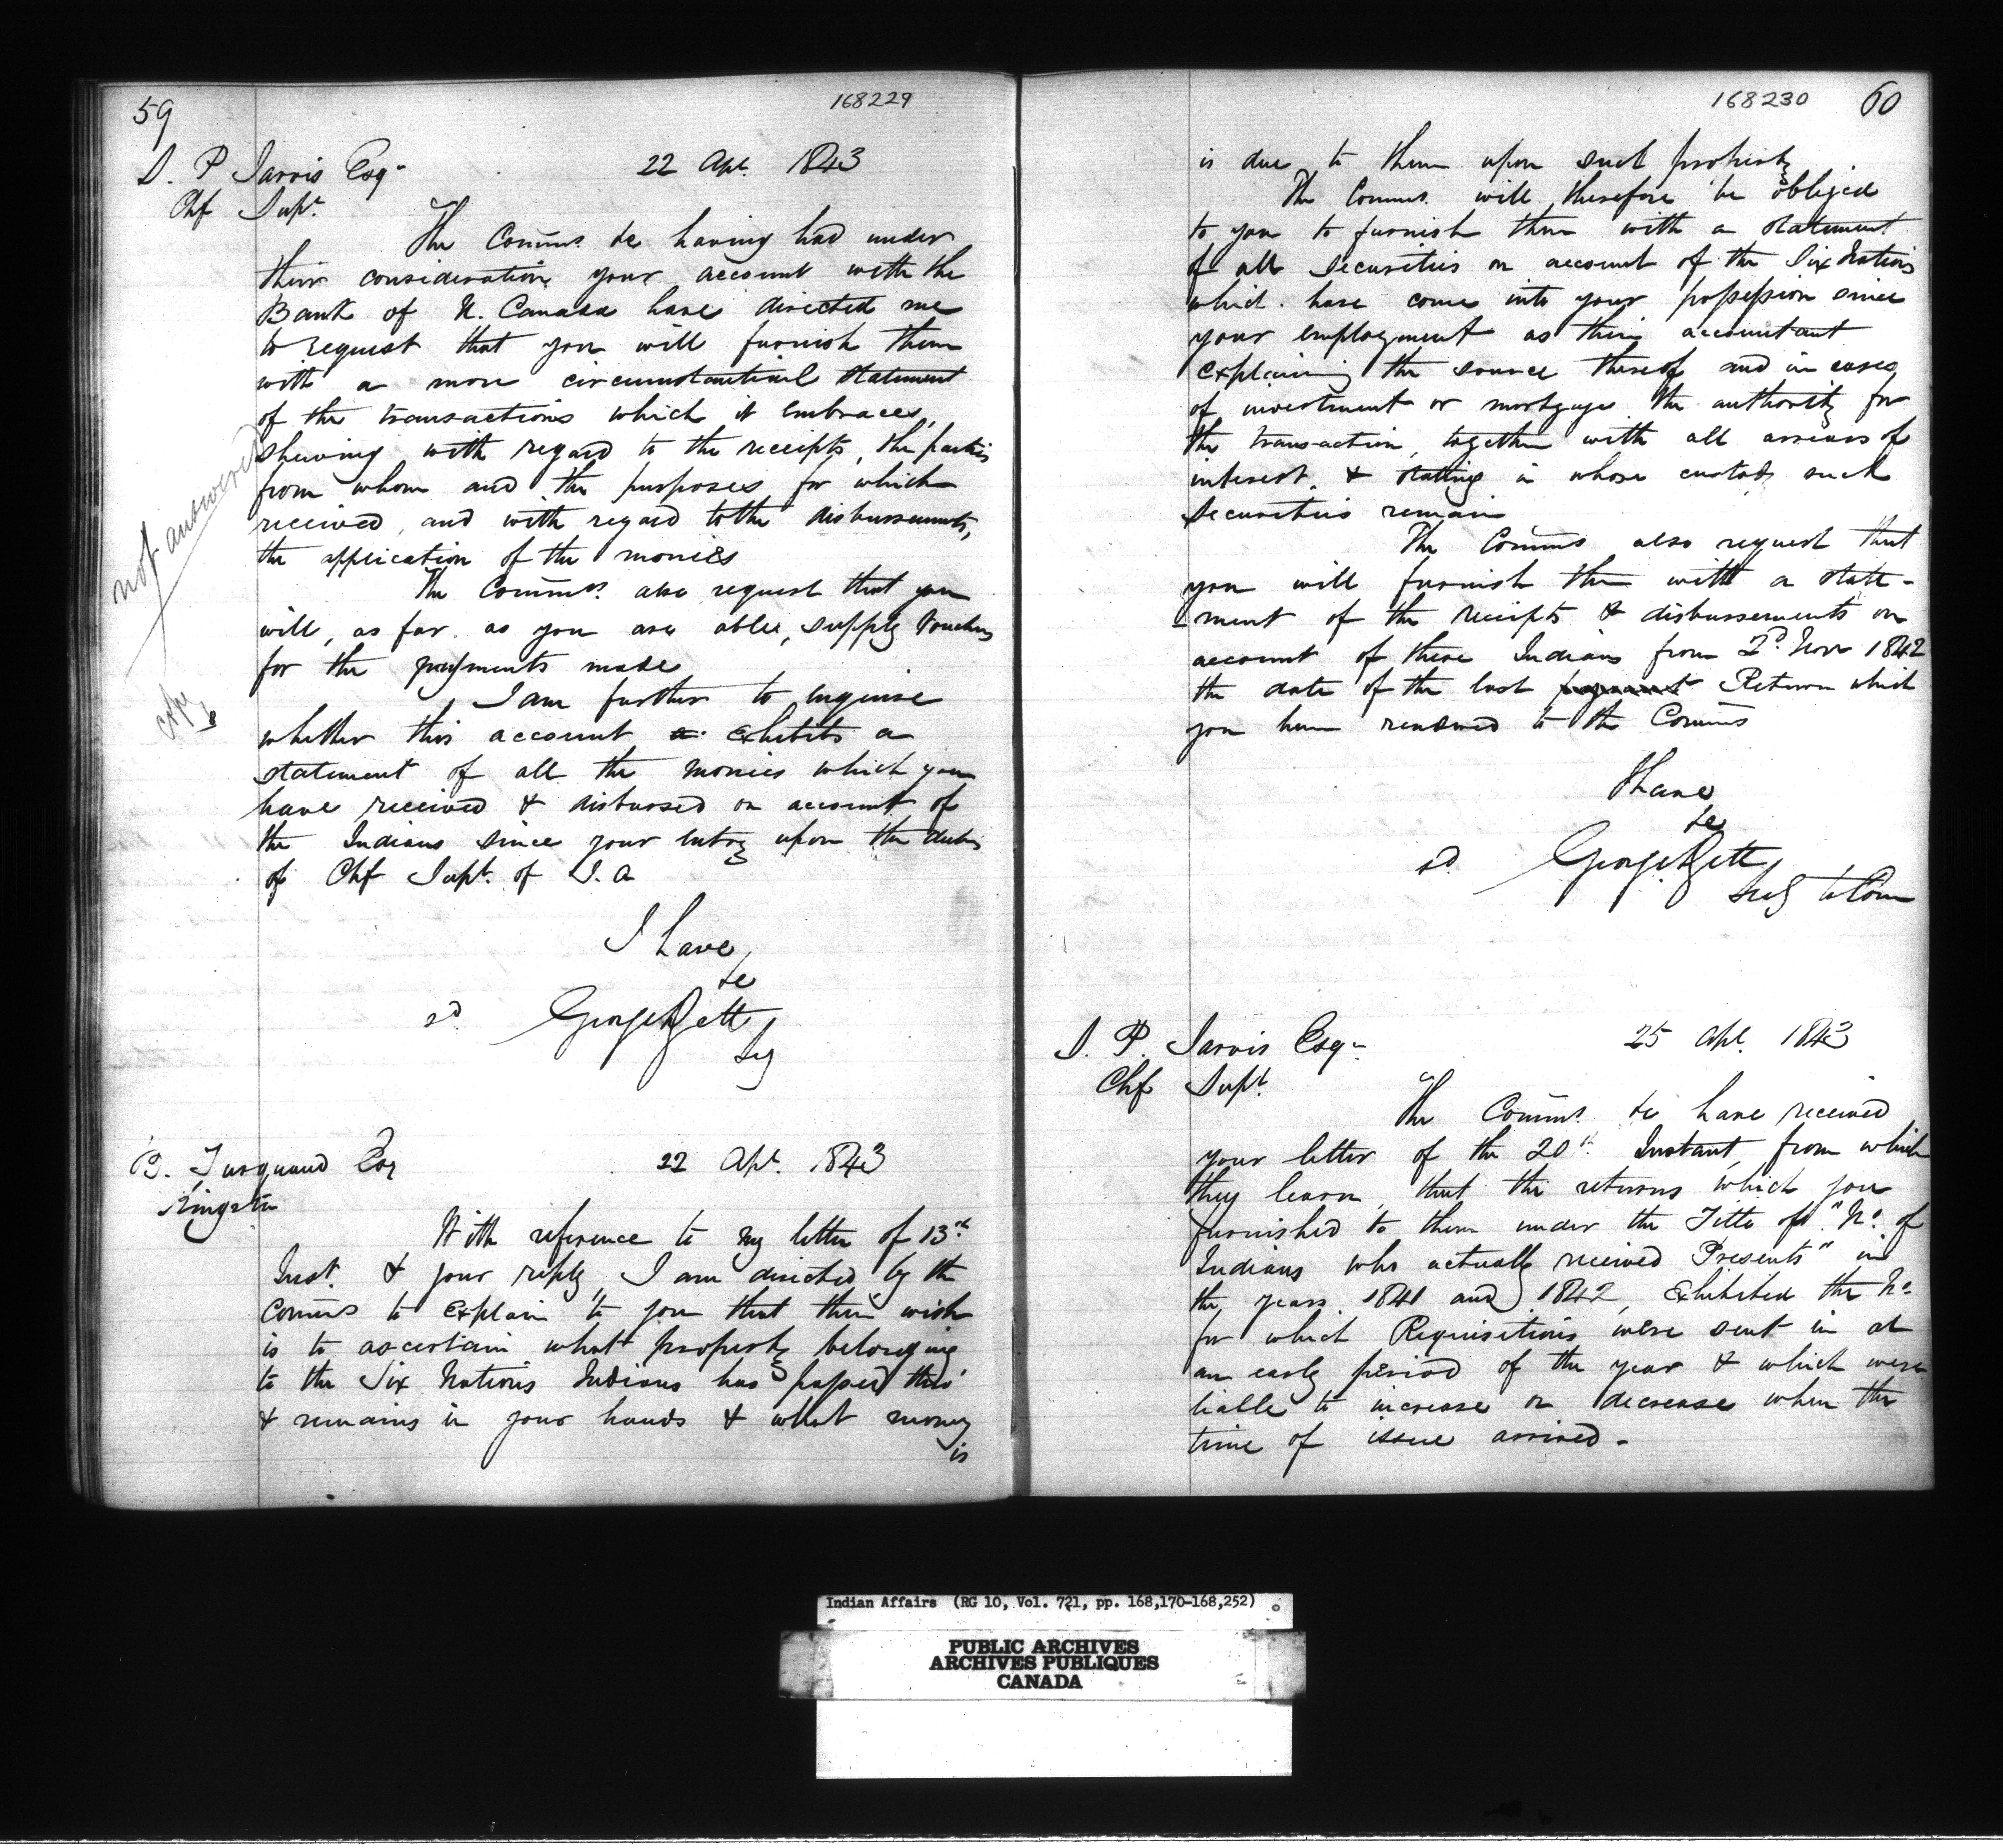 59
168229
S. P. Jarvis Esqr
22 Apl. 1843
Chf Supt.
The Comms. &c having had under
their consideration your account with the
Bank of U. Canada have directed me
to request that you will furnish them
with a more circumstantial statement
of the transactions which it embraces,
shewing with regard to the receipts, the parties
from whom and the purposes for which
received, and with regard to the disbursements,
the application of the monies
The Comms. also request that you
will, as far as you are able, supply Vouchers
for the payments made
I am further to enquire
whether this account exhibits a
statement of all the monies which you
have received & disbursed on account of
the Indians since your entry upon the duties
of Chf Supt. of I. A
not answered
I have
&c
sd. George Rett
Secy
B. Turquand Esq
22 Apl. 1843
Kingston
With reference to my letter of 13th
Inst. & your reply, I am directed by the
Comms to explain to you that their wish
is to ascertain what property belonging
to the Six Nations Indians has passed thro'
& remains in your hands & what money
is
168230
60
is due to them upon such property
The Comms. will therefore be obliged
to you to furnish them with a statement
of all Securities on account of the Six Nations
which have come into your possession since
your employment as their accountant
explaining the source thereof and in cases
of investment or mortgage the authority for
the transaction, together with all arrears of
interest, & stating in whose custody such
Securities remain
The Comms also request that
you will furnish them with a state-
-ment of the receipts & disbursements on
account of these Indians from 2d Novr 1842
the date of the last Return which
you have rendered to the Comms
I have
&c
sd. George Rett
Secy to Com
S. P. Jarvis Esqr
25 Apl. 1843
Chf Supt.
The Comms. &c have received
your letter of the 20th Instant, from which
they learn, that the returns which you
furnished to them under the Title of "No. of
Indians who actually received Presents" in
the years 1841 and 1842, exhibited the No.
for which Requisitions were sent in at
an early period of the year & which were
liable to increase or decrease when the
time of issue arrived -
Indian Affairs (RG 10, Vol. 721, pp. 168,170-168,252)
PUBLIC ARCHIVES
ARCHIVES PUBLIQUES
CANADA